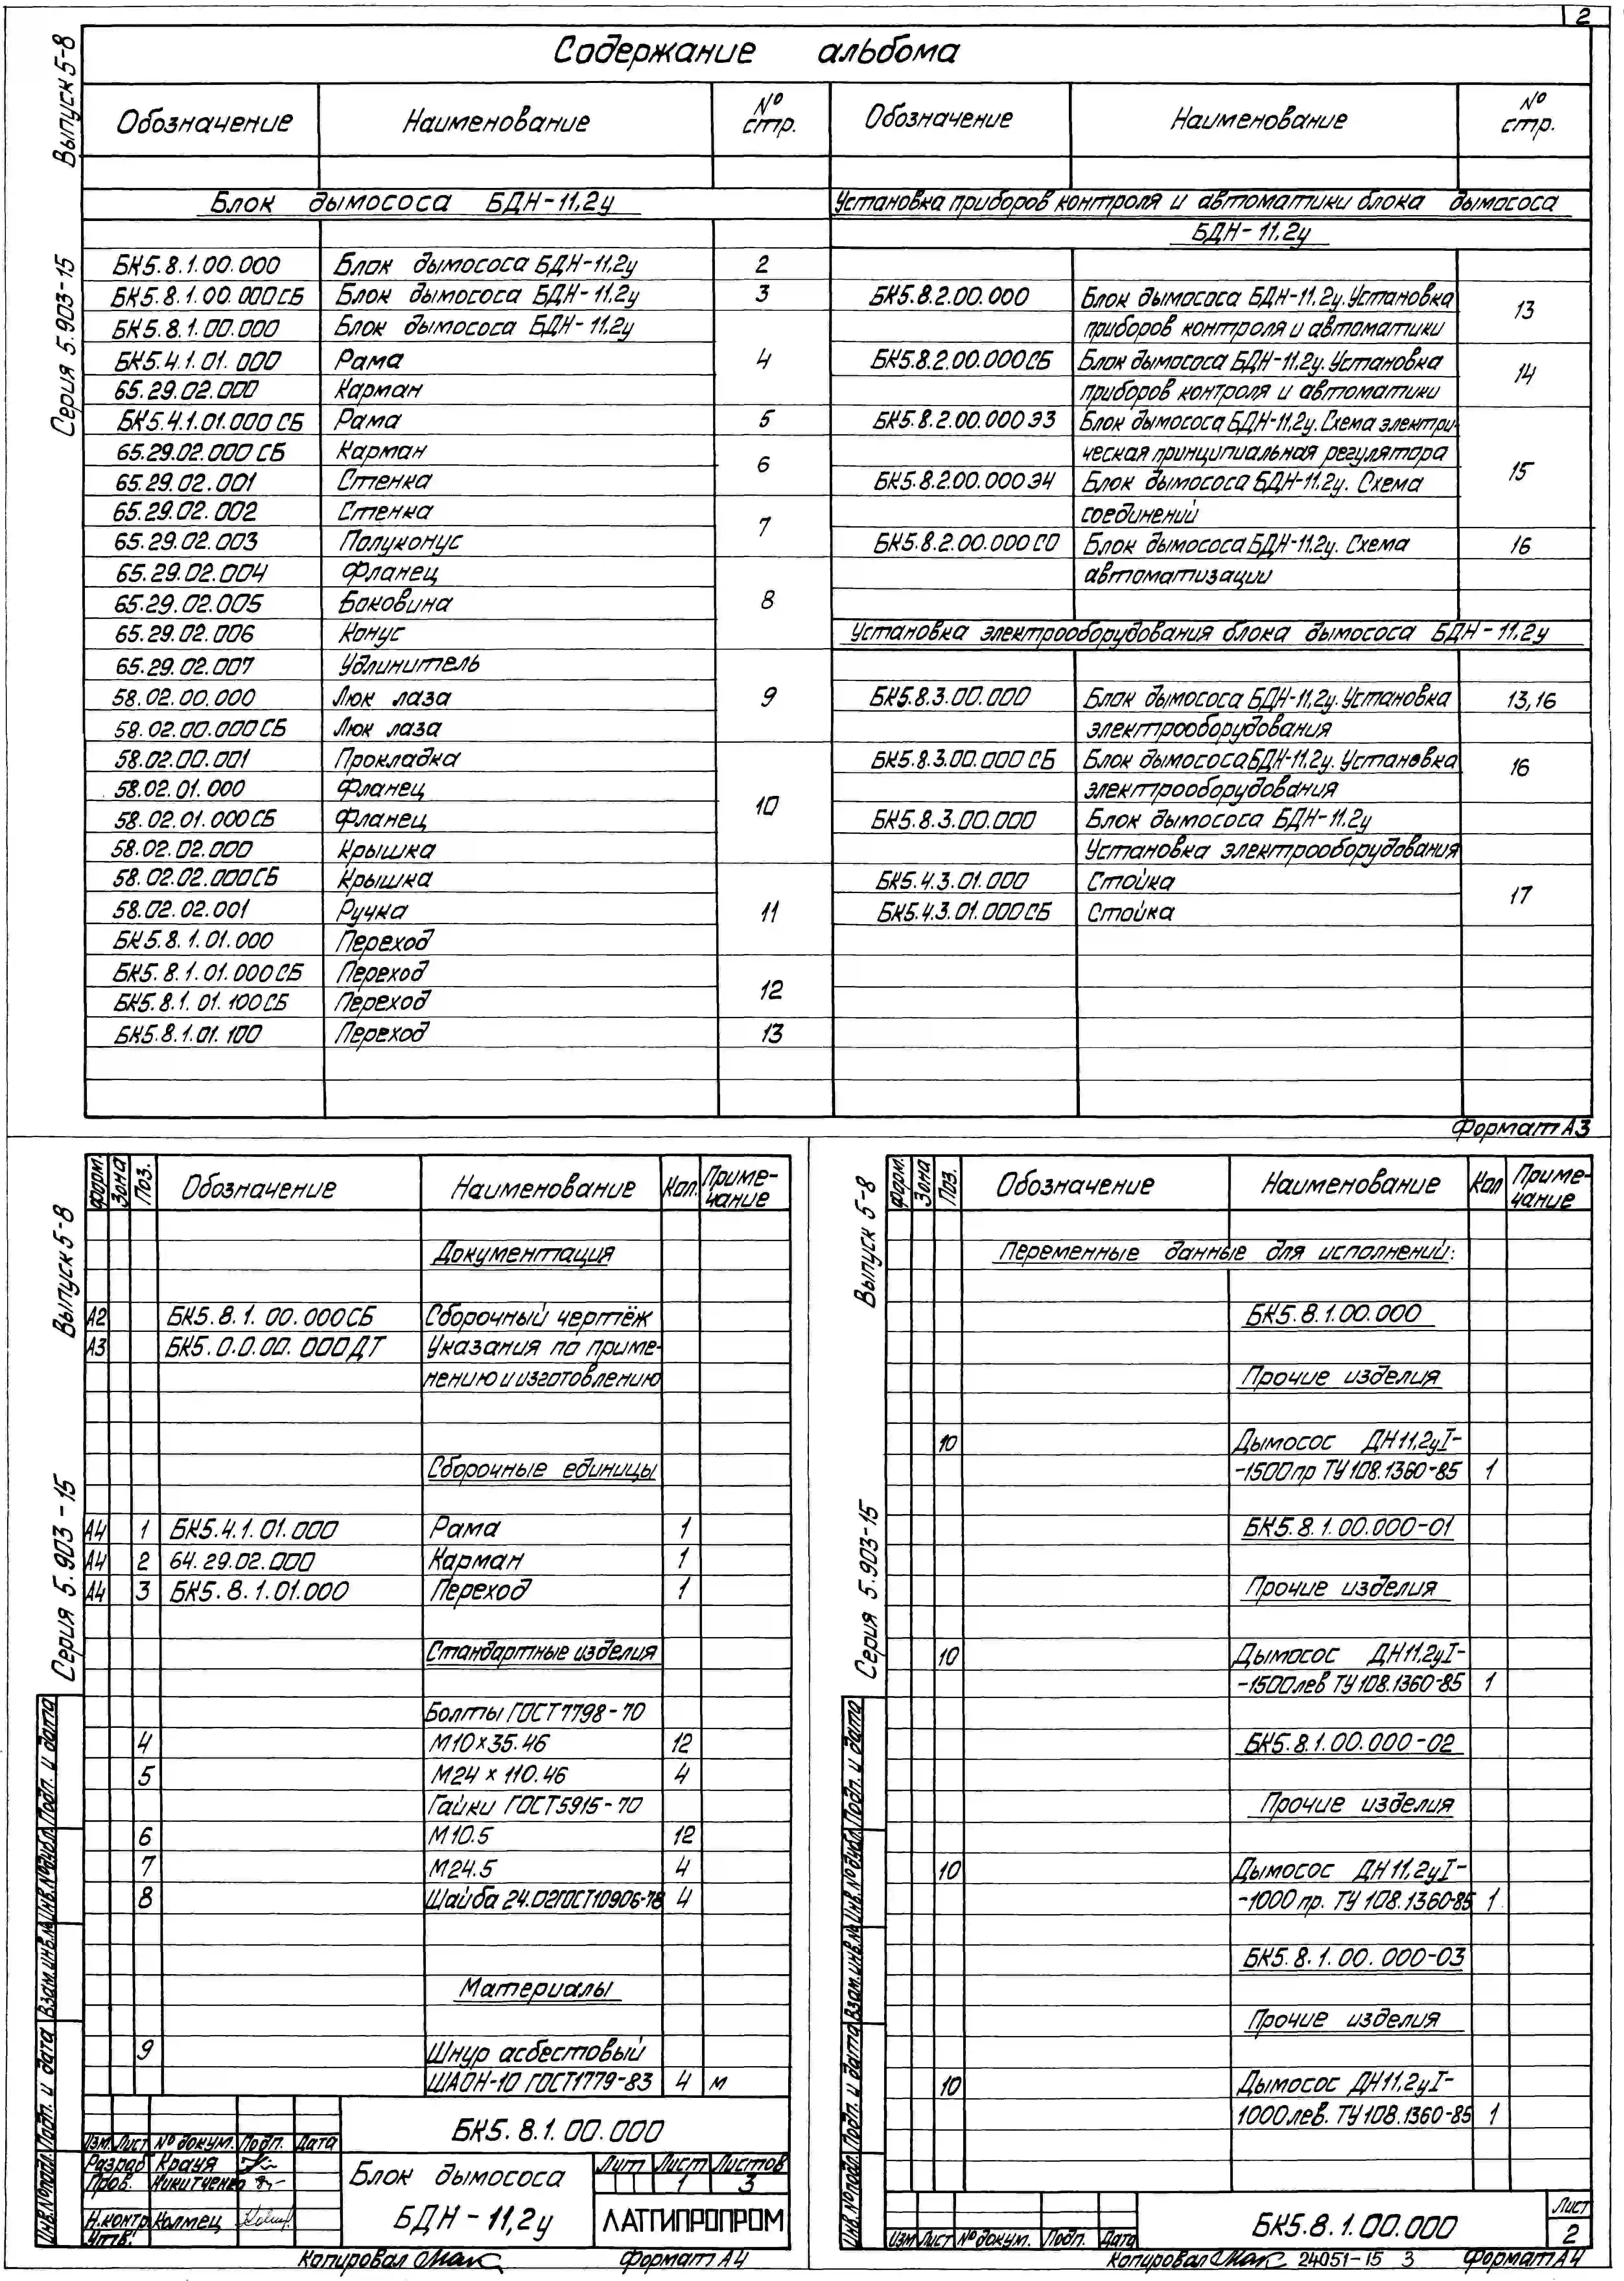 2
Выпуск 5-8
Серия 5.903-15
Содержание альбома
Обозначение Наименование № стр. Обозначение Наименование № стр.
Блок дымососа БДН-11,2у
БК5.8.1.00.000 Блок дымососа БДН-11,2у 2
БК5.8.1.00.000СБ Блок дымососа БДН-11,2у 3
БК5.8.1.00.000 Блок дымососа БДН-11,2у
БК5.4.1.01.000 Рама 4
65.29.02.000 Карман
БК5.4.1.01.000СБ Рама 5
65.29.02.000СБ Карман
65.29.02.001 Стенка 6
65.29.02.002 Стенка
65.29.02.003 Полуконус 7
65.29.02.004 Фланец
65.29.02.005 Боковина 8
65.29.02.006 Конус
65.29.02.007 Удлинитель
58.02.00.000 Люк лаза 9
58.02.00.000СБ Люк лаза
58.02.00.001 Прокладка
58.02.01.000 Фланец
58.02.01.000СБ Фланец 10
58.02.02.000 Крышка
58.02.02.000СБ Крышка
58.02.02.001 Ручка 11
БК5.8.1.01.000 Переход
БК5.8.1.01.000СБ Переход
БК5.8.1.01.100СБ Переход 12
БК5.8.1.01.100 Переход 13
Установка приборов контроля и автоматики блока дымососа
БДН-11,2у
БК5.8.2.00.000 Блок дымососа БДН-11,2у. Установка
приборов контроля и автоматики 13
БК5.8.2.00.000СБ Блок дымососа БДН-11,2у. Установка
приборов контроля и автоматики 14
БК5.8.2.00.000Э3 Блок дымососа БДН-11,2у. Схема электри-
ческая принципиальная регулятора
БК5.8.2.00.000Э4 Блок дымососа БДН-11,2у. Схема 15
соединений
БК5.8.2.00.000СО Блок дымососа БДН-11,2у. Схема 16
автоматизации
Установка электрооборудования блока дымососа БДН-11,2у
БК5.8.3.00.000 Блок дымососа БДН-11,2у. Установка 13,16
электрооборудования
БК5.8.3.00.000СБ Блок дымососа БДН-11,2у. Установка 16
электрооборудования
БК5.8.3.00.000 Блок дымососа БДН-11.2у
Установка электрооборудования
БК5.4.3.01.000 Стойка 17
БК5.4.3.01.000СБ Стойка
Формат А3
Выпуск 5-8
Серия 5.903-15
Форм. Зона Поз. Обозначение Наименование Кол. Приме-
чание
Документация
А2 БК5.8.1.00.000СБ Сборочный чертёж
А3 БК5.0.0.00.000ДТ Указания по приме-
нению и изготовлению
Сборочные единицы
А4 1 БК5.4.1.01.000 Рама 1
А4 2 64.29.02.000 Карман 1
А4 3 БК5.8.1.01.000 Переход 1
Стандартные изделия
Болты ГОСТ7798-70
4 М10×35.46 12
5 М24×110.46 4
Гайки ГОСТ5915-70
6 М10.5 12
7 М24.5 4
8 Шайба 24.02ГОСТ10906-78 4
Материалы
9 Шнур асбестовый
ШАОН-10 ГОСТ1779-83 4 м
Инв.№подл. Подп. и дата Взам.инв.№ Инв.№дубл. Подп. и дата
Изм. Лист № докум. Подп. Дата
Разраб Крауя
Пров. Никитченко
Н.контр Колмец
Утв.
БК5.8.1.00.000
Блок дымососа
БДН-11,2у
Лит Лист Листов
1 3
ЛАТГИПРОПРОМ
Копировал Формат А4
Выпуск 5-8
Серия 5.903-15
Форм. Зона Поз. Обозначение Наименование Кол Приме-
чание
Переменные данные для исполнений:
БК5.8.1.00.000
Прочие изделия
10 Дымосос ДН11,2уI-
-1500пр ТУ108.1360-85 1
БК5.8.1.00.000-01
Прочие изделия
10 Дымосос ДН11,2уI-
-1500лев ТУ108.1360-85 1
БК5.8.1.00.000-02
Прочие изделия
10 Дымосос ДН11,2уI-
-1000 пр. ТУ108.1360-85 1
БК5.8.1.00.000-03
Прочие изделия
10 Дымосос ДН11,2уI-
1000лев. ТУ108.1360-85 1
Инв.№подл. Подп. и дата Взам.инв.№ Инв.№дубл. Подп. и дата
Изм Лист № докум. Подп. Дата
БК5.8.1.00.000
Лист
2
Копировал 24051-15 3 Формат А4